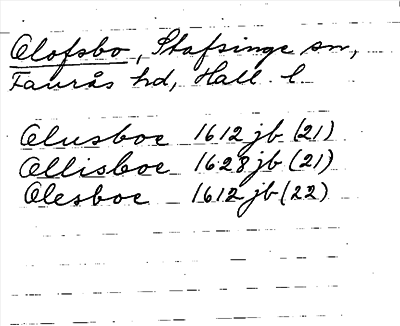 Olofsbo, Stafsinge sn,
Faurås hd, Hall. l.
Olusboe 1612 jb (21)
Ollisboe 1628 jb (21)
Olesboe 1612 jb (22)